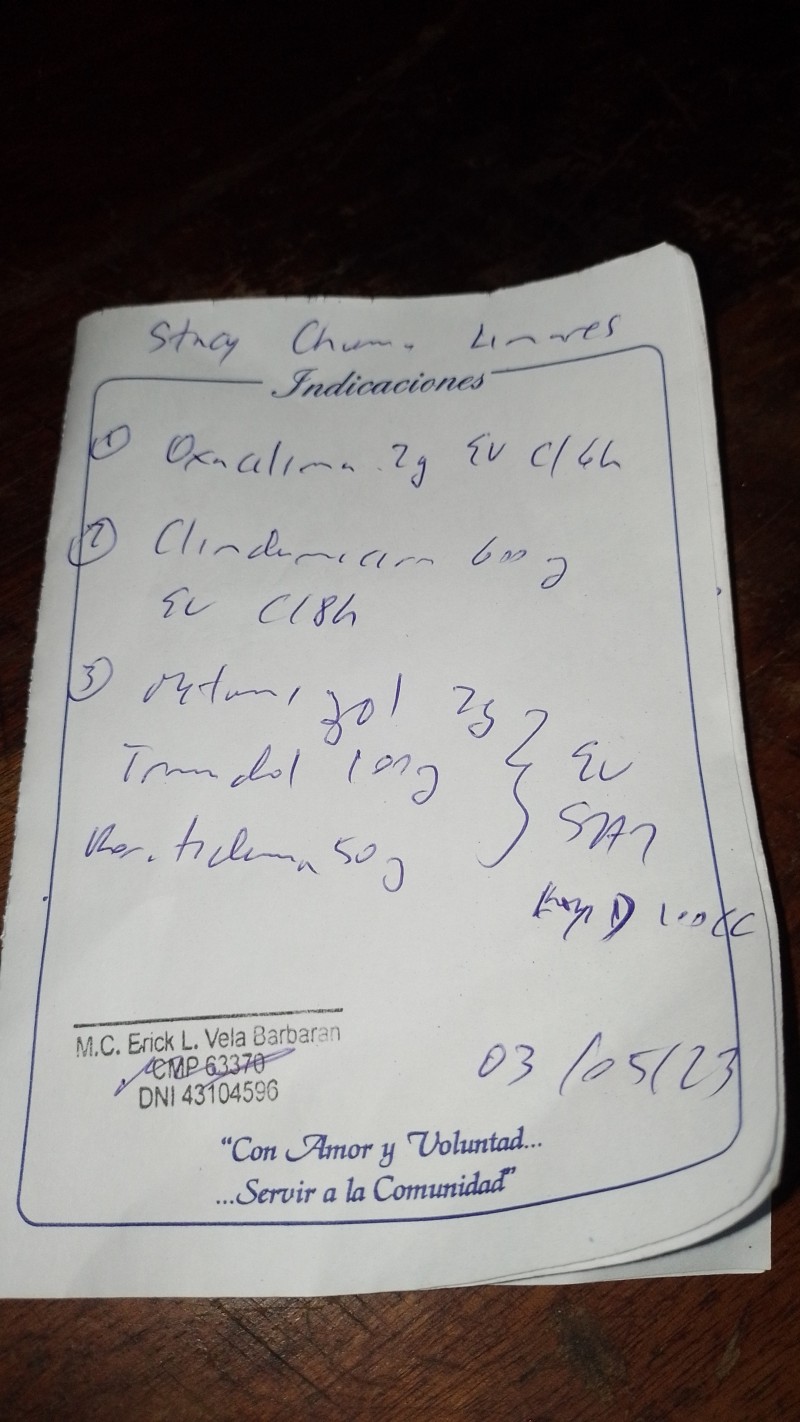 Stacy Chuma Linares
Indicaciones
① Oxacilina 2g EV C/6h
② Clindamicina 600 g
EV C/8h
③ Metamizol 2g
Tramadol 100g } EV
Ranitidina 50g STAT
100cc
M.C. Erick L. Vela Barbaran
CMP 63370
DNI 43104596
03/05/23
"Con Amor y Voluntad...
...Servir a la Comunidad"